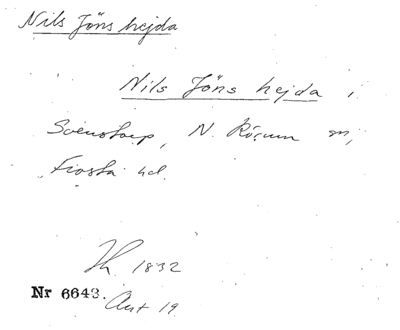 Nils Jöns hejda
Nils Jöns hejda i
Svenstorp, N. Rörum sn,
Frosta hd.
1832
Nr 6643. Ant 19